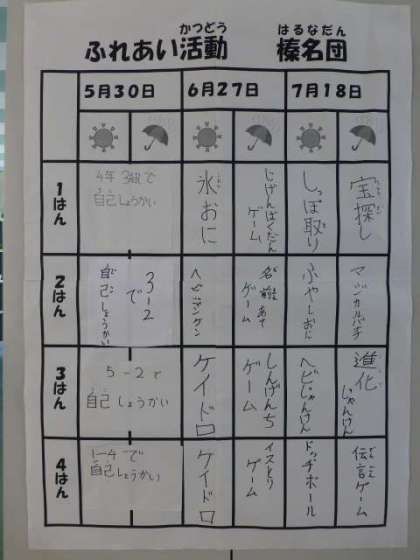 かつどう はるなだん
ふれあい活動 榛名団
5月30日 6月27日 7月18日
1はん
4年3組で
自己しょうかい
氷おに
じげんばくだん
ゲーム
しっぽ取り
宝探し
2はん
3-2
で
自己しょうかい
ヘビジャンケン
名前あて
ゲーム
ふやしおに
マジカルバナナ
3はん
5-2で
自己しょうかい
ケイドロ
しんげんち
ゲーム
ヘビじゃんけん
進化
じゃんけん
4はん
1-4で
自己しょうかい
ケイドロ
イスとり
ゲーム
ドッヂボール
伝言ゲーム